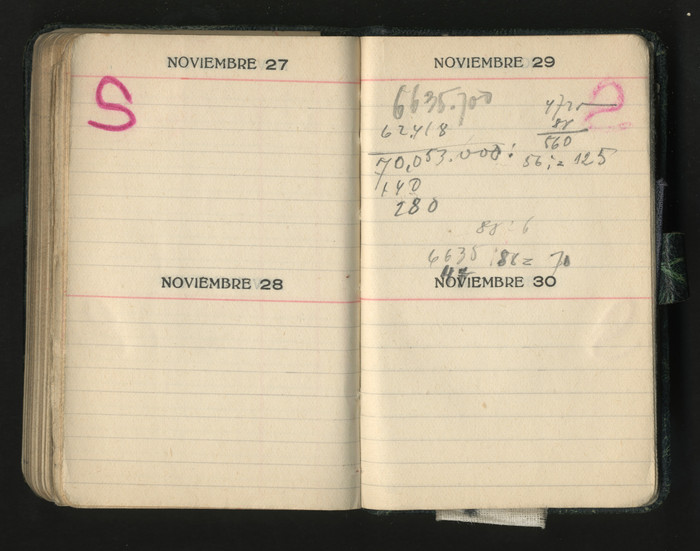 NOVIEMBRE 27
S
NOVIEMBRE 28
NOVIEMBRE 29
6635.700
62418
70,053.000:
140
280
88
560
56:= 125
88:6
6635 :88= 70
NOVIEMBRE 30